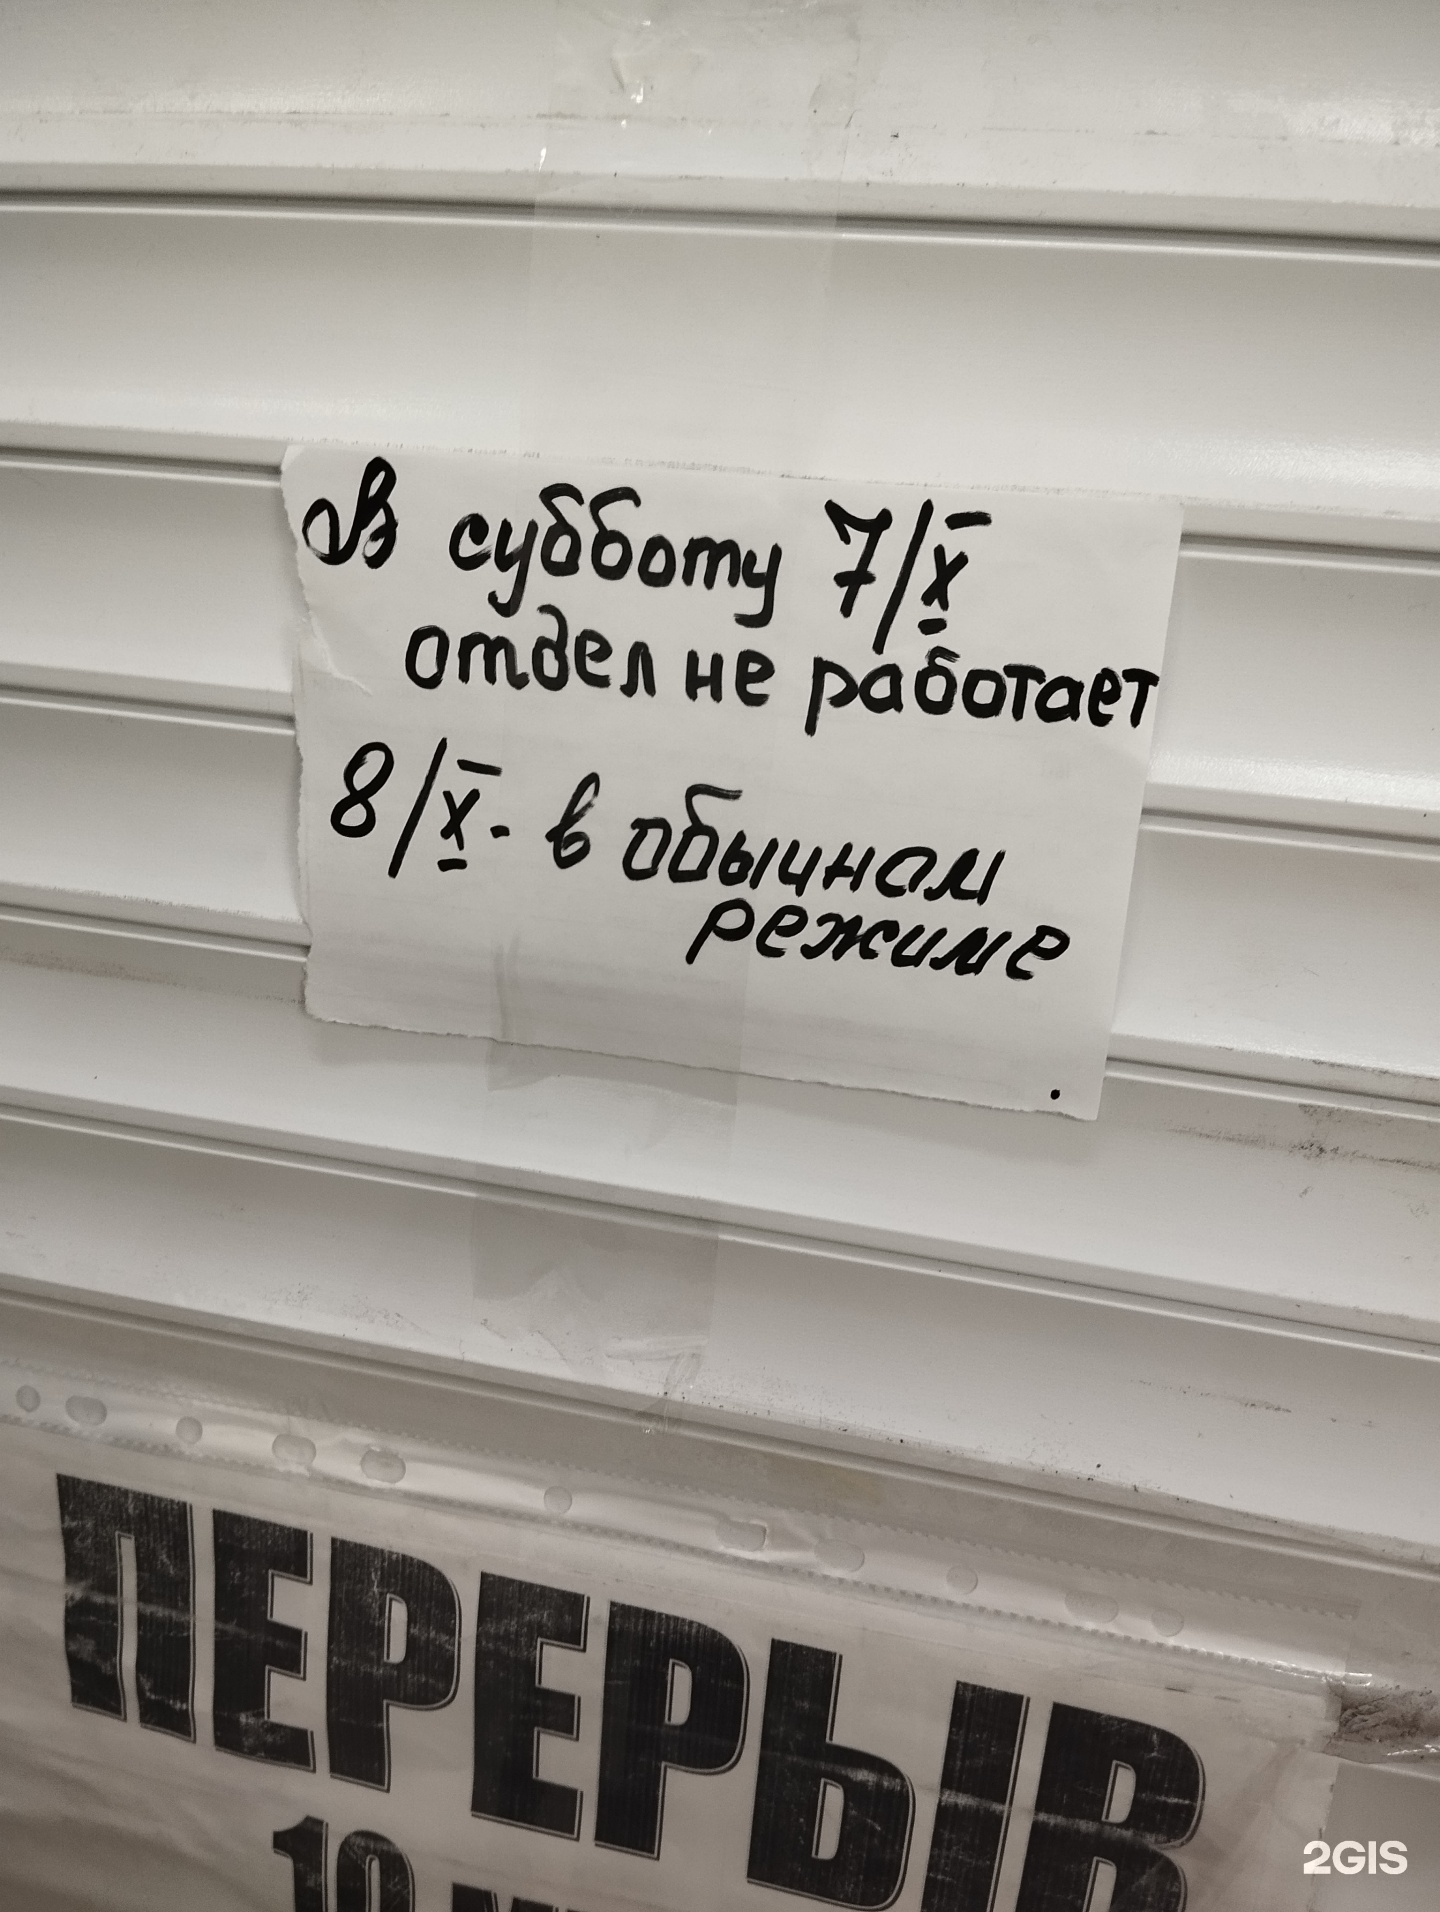 В субботу 7/X
отдел не работает
8/X - в обычном
режиме
ПЕРЕРЫВ
10
2GIS